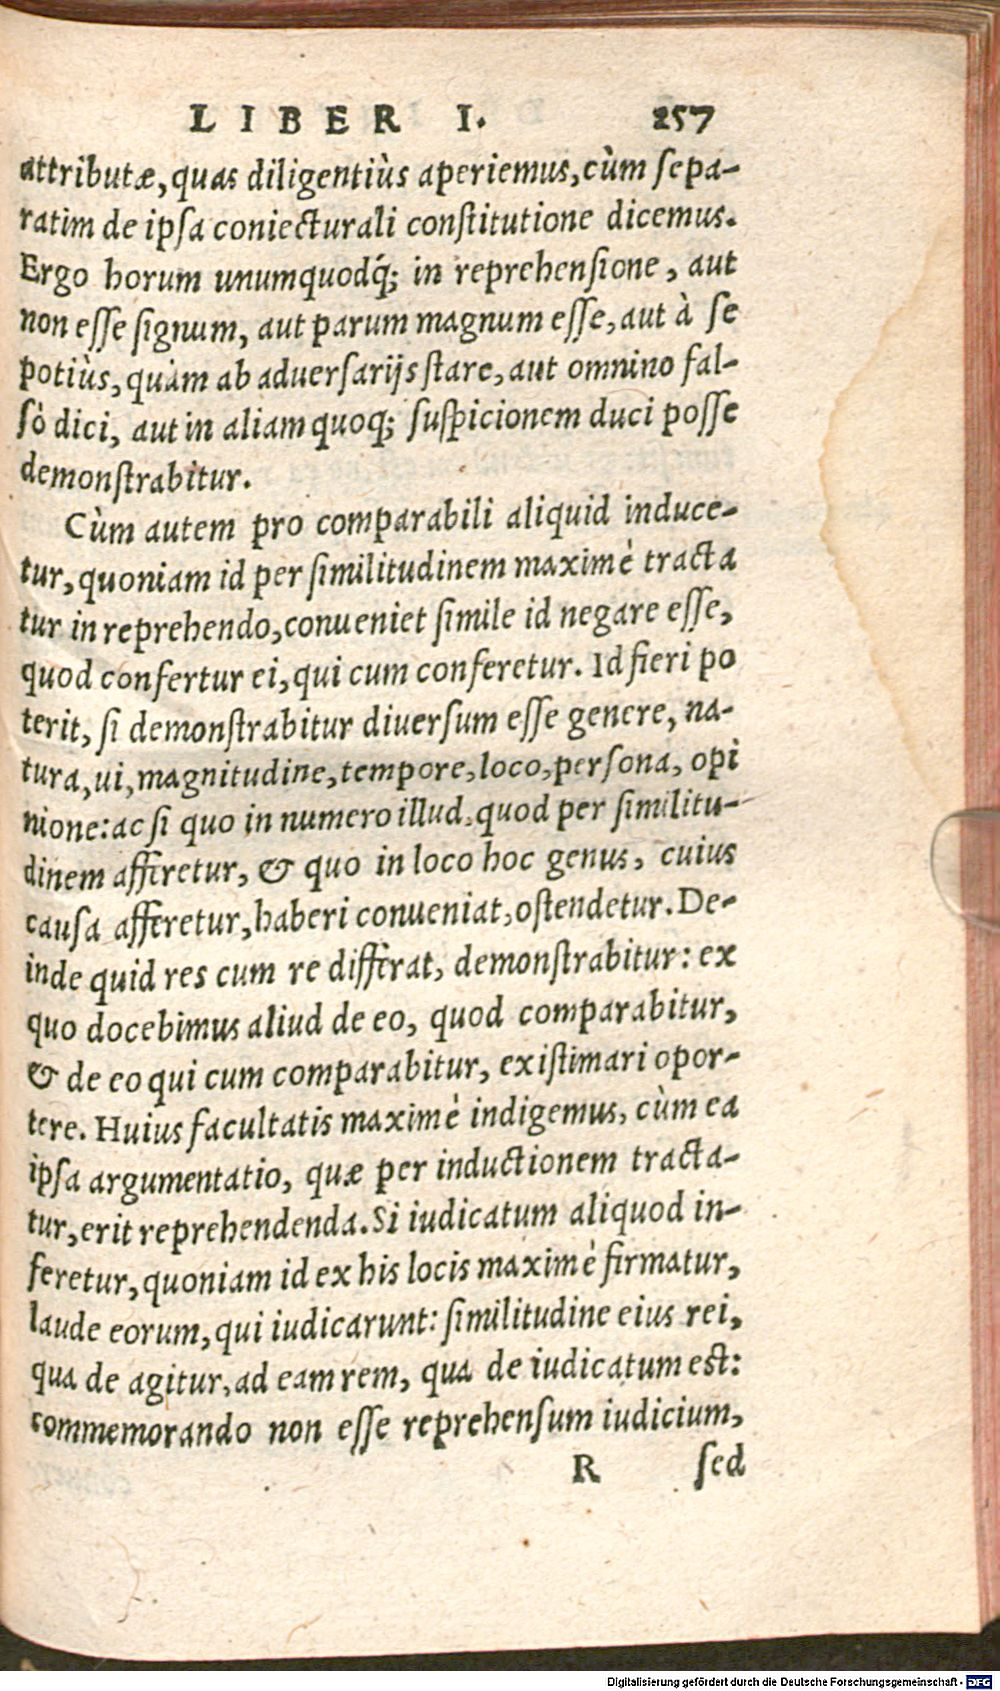 LIBER I. 257
attributæ, quas diligentiùs aperiemus, cùm sepa-
ratim de ipsa coniecturali constitutione dicemus.
Ergo horum unumquodq́; in reprehensione, aut
non esse signum, aut parum magnum esse, aut à se
potiùs, quàm ab aduersarijs stare, aut omnino fal-
sò dici, aut in aliam quoq; suspicionem duci posse
demonstrabitur.
Cùm autem pro comparabili aliquid induce-
tur, quoniam id per similitudinem maximè tracta
tur in reprehendo, conueniet simile id negare esse,
quod confertur ei, qui cum conferetur. Id fieri po
terit, si demonstrabitur diuersum esse genere, na-
tura, ui, magnitudine, tempore, loco, persona, opi
nione: ac si quo in numero illud, quod per similitu-
dinem afferetur, & quo in loco hoc genus, cuius
causa afferetur, haberi conueniat, ostendetur. De-
inde quid res cum re differat, demonstrabitur: ex
quo docebimus aliud de eo, quod comparabitur,
& de eo qui cum comparabitur, existimari opor-
tere. Huius facultatis maximè indigemus, cùm ea
ipsa argumentatio, quæ per inductionem tracta-
tur, erit reprehendenda. Si iudicatum aliquod in-
feretur, quoniam id ex his locis maximè firmatur,
laude eorum, qui iudicarunt: similitudine eius rei,
qua de agitur, ad eam rem, qua de iudicatum est:
commemorando non esse reprehensum iudicium,
R sed
Digitalisierung gefördert durch die Deutsche Forschungsgemeinschaft - DFG